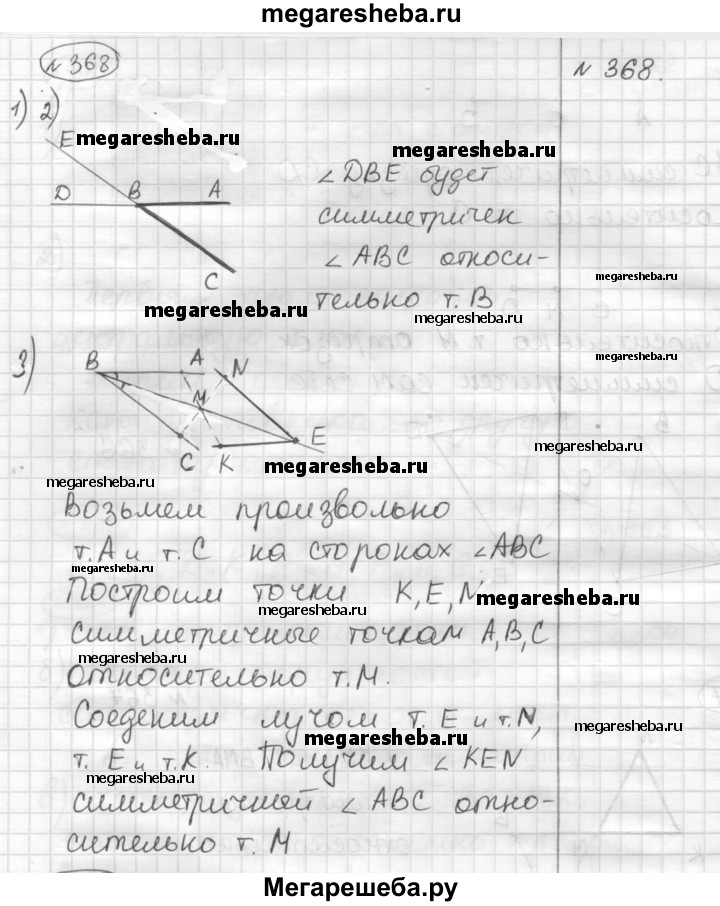 megaresheba.ru
№ 368
№ 368.
1) 2)
E
megaresheba.ru
megaresheba.ru
D B A
∠DBE будет
симметричен
C
∠ABC относи-
megaresheba.ru
megaresheba.ru
тельно т. B
megaresheba.ru
3)
B A N
megaresheba.ru
M
E
C K
megaresheba.ru
megaresheba.ru
megaresheba.ru
Возьмем произвольно
т. A и т. C на сторонах ∠ABC
megaresheba.ru
Построим точки K, E, N
megaresheba.ru
megaresheba.ru
симметричные точкам A, B, C
megaresheba.ru
относительно т. M.
Соеденим лучом т. E и т. N,
megaresheba.ru
megaresheba.ru
т. E и т. K. Получим ∠KEN
megaresheba.ru
симметричной ∠ABC отно-
сительно т. M
Мегарешеба.ру